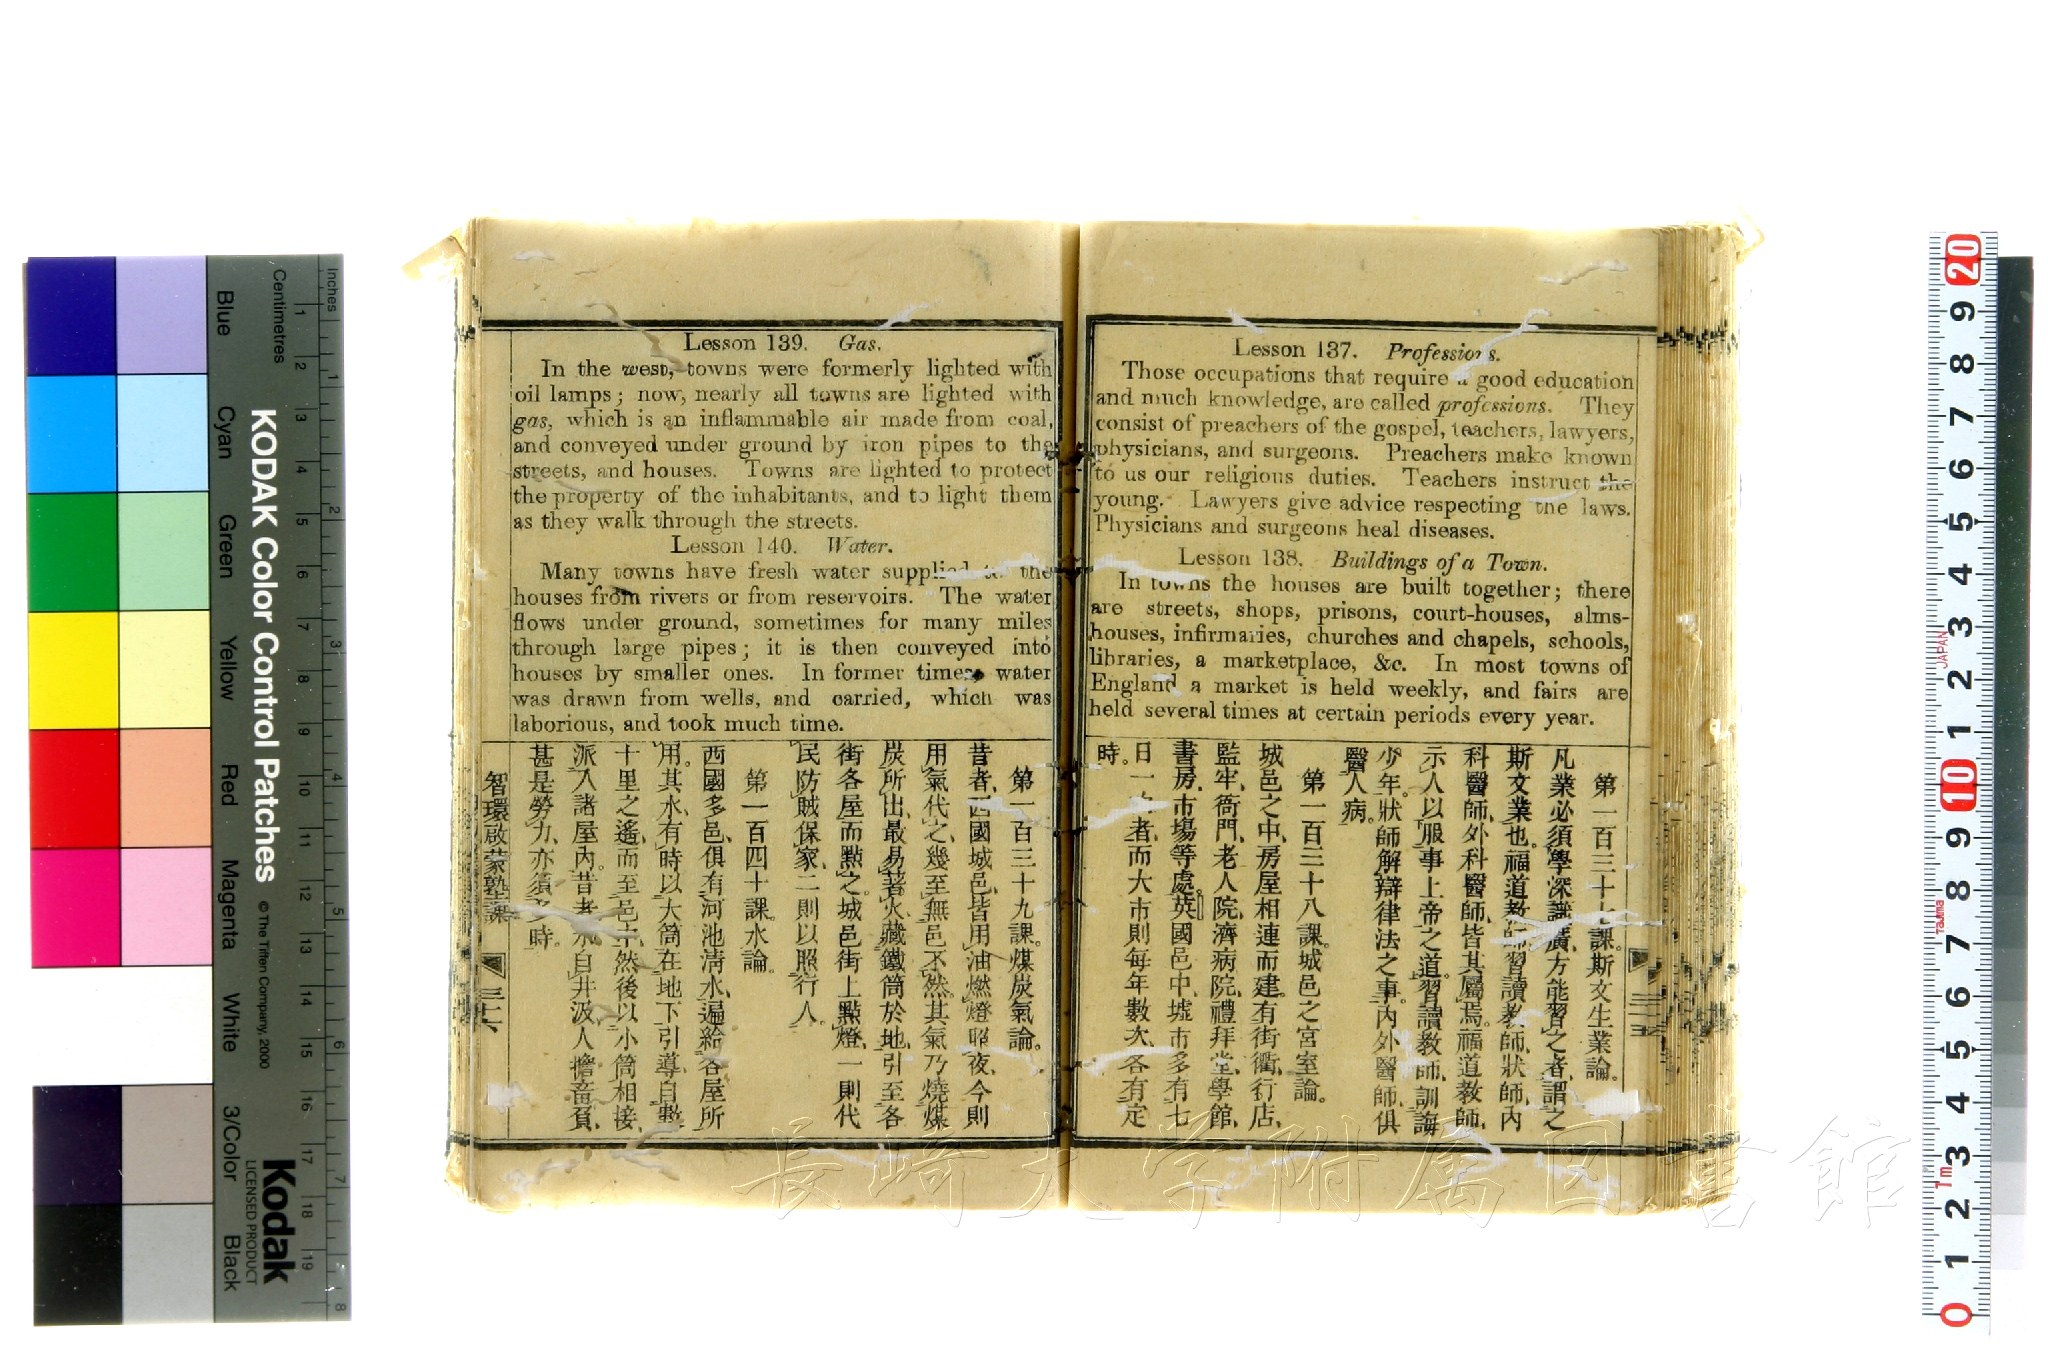 Lesson 137. Professions.
Those occupations that require a good education
and much knowledge, are called professions. They
consist of preachers of the gospel, teachers, lawyers,
physicians, and surgeons. Preachers make known
to us our religious duties. Teachers instruct the
young. Lawyers give advice respecting the laws.
Physicians and surgeons heal diseases.
Lesson 138. Buildings of a Town.
In towns the houses are built together; there
are streets, shops, prisons, court-houses, alms-
houses, infirmaries, churches and chapels, schools,
libraries, a marketplace, &c. In most towns of
England a market is held weekly, and fairs are
held several times at certain periods every year.
第一百三十七課。斯文生業論。
凡業必須學深識廣、方能習之者、謂之
斯文業也。福道教師、習讀教師、狀師、內
科醫師、外科醫師、皆其屬焉。福道教師、
示人以服事上帝之道。習讀教師、訓誨
少年。狀師解辯律法之事。內外醫師、俱
醫人病。
第一百三十八課。城邑之宮室論。
城邑之中、房屋相連而建。有街衢、行店、
監牢、衙門、老人院、濟病院、禮拜堂、學館、
書房、市場等處。英國邑中、墟市多有七
日一者、而大市則每年數次、各有定
時。
Lesson 139. Gas.
In the west, towns were formerly lighted with
oil lamps; now, nearly all towns are lighted with
gas, which is an inflammable air made from coal,
and conveyed under ground by iron pipes to the
streets, and houses. Towns are lighted to protect
the property of the inhabitants, and to light them
as they walk through the streets.
Lesson 140. Water.
Many towns have fresh water supplied to the
houses from rivers or from reservoirs. The water
flows under ground, sometimes for many miles
through large pipes; it is then conveyed into
houses by smaller ones. In former times water
was drawn from wells, and carried, which was
laborious, and took much time.
第一百三十九課。煤炭氣論。
昔者、西國城邑、皆用油燃燈照夜、今則
用氣代之、幾至無邑不然。其氣乃燒煤
炭所出、最易著火、藏鐵筒於地、引至各
街各屋而點之。城邑街上點燈、一則代
民防賊保家、二則以照行人。
第一百四十課。水論。
西國多邑、俱有河池清水、遍給各屋所
用。其水、有時以大筒在地下引導、自數
十里之遙、而至邑中、然後以小筒相接、
派入諸屋內。昔者、水自井汲、人擔畜負、
甚是勞力、亦須多時。
智環啟蒙塾課
三六
KODAK Color Control Patches
© The Tiffen Company, 2000
Kodak
LICENSED PRODUCT
Inches
Centimetres
Blue
Cyan
Green
Yellow
Red
Magenta
White
3/Color
Black
1 2 3 4 5 6 7 8 9 10 11 12 13 14 15 16 17 18 19
1 2 3 4 5 6 7 8
20 9 8 7 6 5 4 3 2 1 10 9 8 7 6 5 4 3 2 1 0
JAPAN
Tajima
1m
長崎大学附属図書館